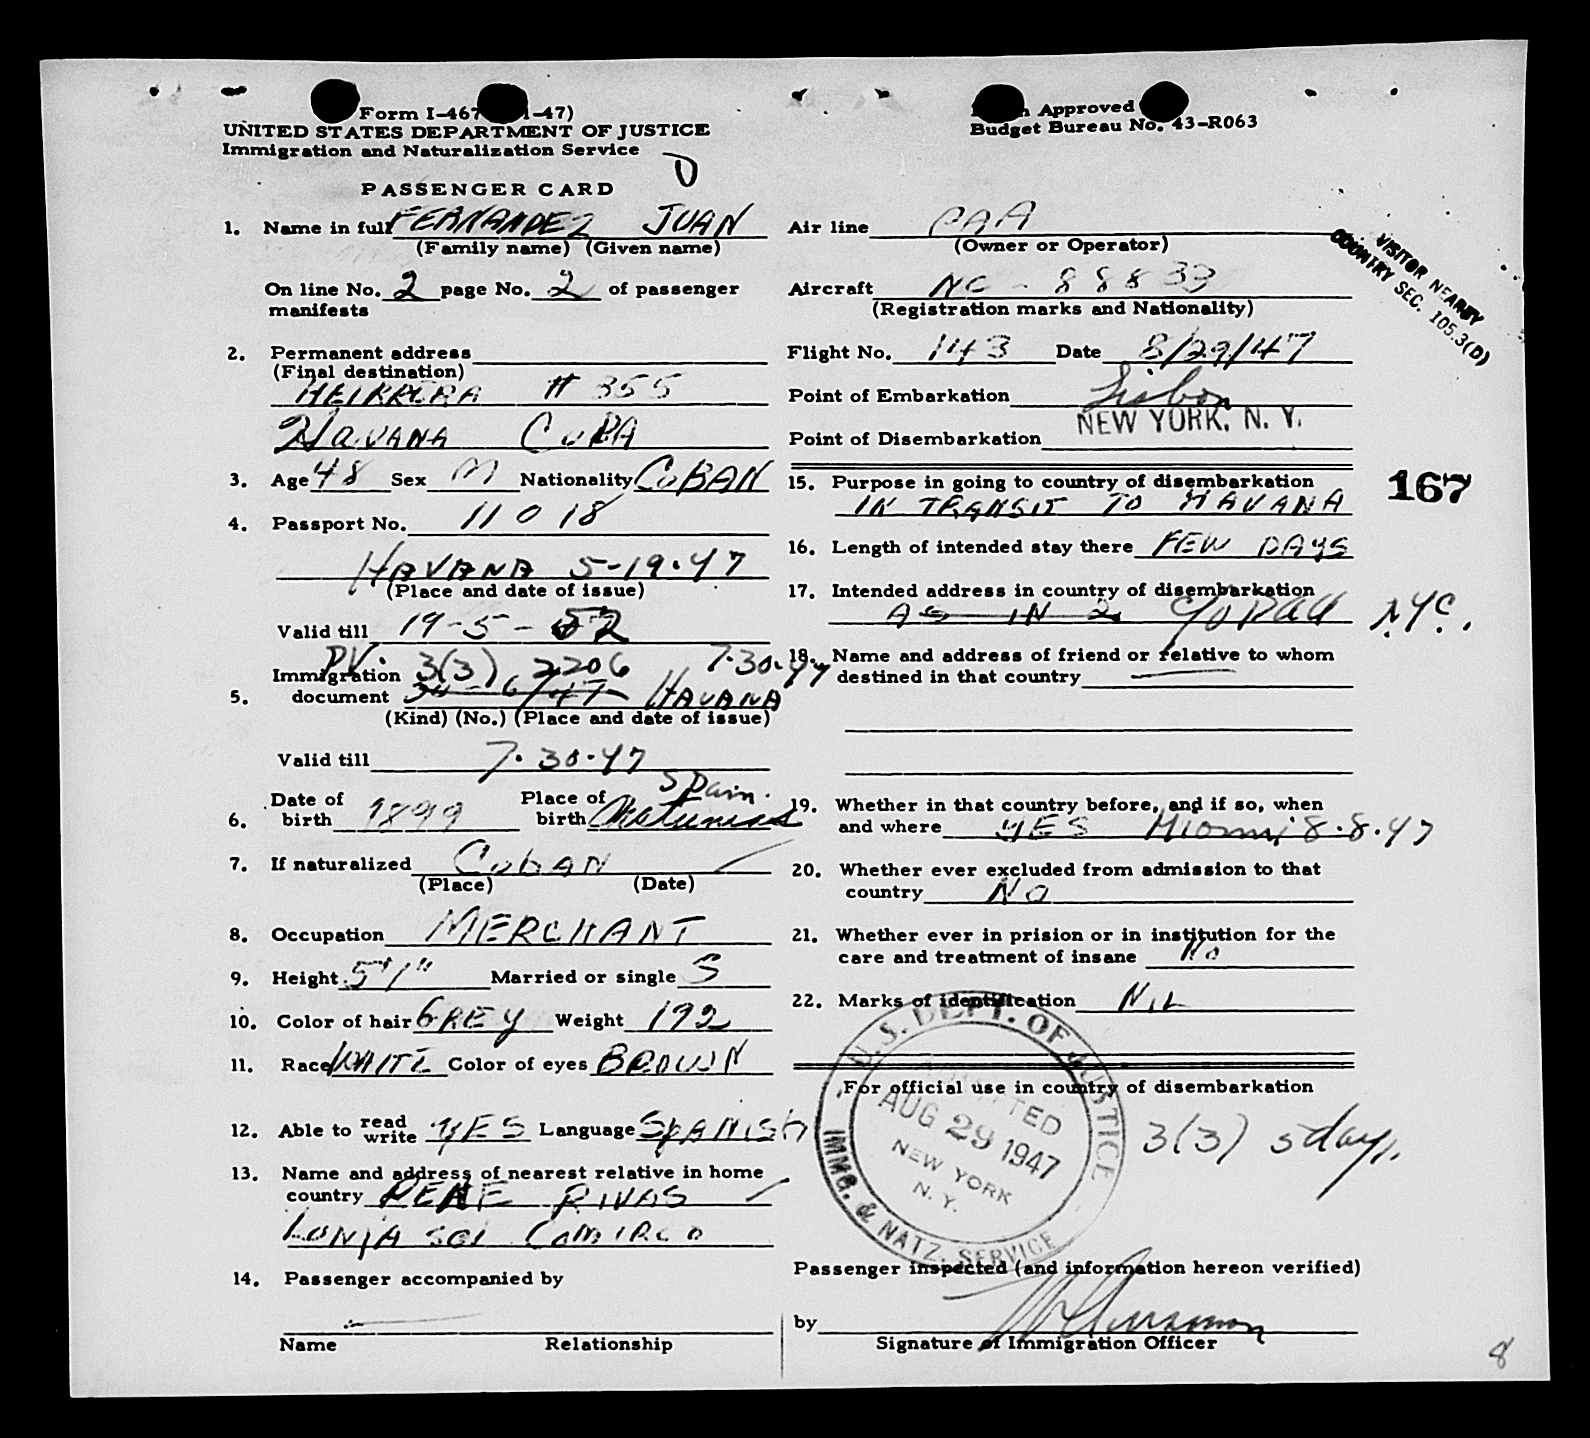 Form I-467 -47)
UNITED STATES DEPARTMENT OF JUSTICE
Immigration and Naturalization Service
PASSENGER CARD
1. Name in full FERNANDEZ JUAN
(Family name) (Given name)
On line No. 2 page No. 2 of passenger
manifests
2. Permanent address
(Final destination)
# 355
Havana CUBA
3. Age 48 Sex M Nationality CUBAN
4. Passport No. 11018
HAVANA 5-19-47
(Place and date of issue)
Valid till 19-5-52
PV. 3(3) 2206 7.30.47
Immigration
5. document HAVANA
(Kind) (No.) (Place and date of issue)
Valid till 7.30.47
Spain.
6. Date of birth 1899 Place of birth
7. If naturalized CUBAN
(Place) (Date)
8. Occupation MERCHANT
9. Height 5'1" Married or single S
10. Color of hair GREY Weight 192
11. Race WHITE Color of eyes BROWN
12. Able to read write YES Language SPANISH
13. Name and address of nearest relative in home
country RENE RIVAS
LONJA
14. Passenger accompanied by
Name Relationship
Approved
Budget Bureau No. 43-R063
Air line PAA
(Owner or Operator)
Aircraft NC-88833
(Registration marks and Nationality)
Flight No. 143 Date 8/29/47
Point of Embarkation Lisbon
Point of Disembarkation NEW YORK, N. Y.
VISITOR NEARBY
COUNTRY SEC. 105.3(D)
15. Purpose in going to country of disembarkation
IN TRANSIT TO HAVANA
167
16. Length of intended stay there FEW DAYS
17. Intended address in country of disembarkation
AS IN 2 c/o PAA NYC.
18. Name and address of friend or relative to whom
destined in that country
19. Whether in that country before, and if so, when
and where YES Miami 8.8.47
20. Whether ever excluded from admission to that
country NO
21. Whether ever in prision or in institution for the
care and treatment of insane No
22. Marks of identification NIL
For official use in country of disembarkation
U.S. DEPT. OF JUSTICE
IMMG. & NATZ. SERVICE
ADMITTED
AUG 29 1947
NEW YORK
N. Y.
3(3) 5 days.
Passenger inspected (and information hereon verified)
by
Signature of Immigration Officer
8